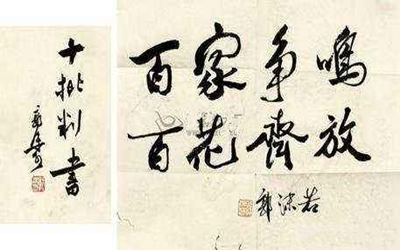 十批判書
郭沫若
百家争鳴
百花齊放
郭沫若